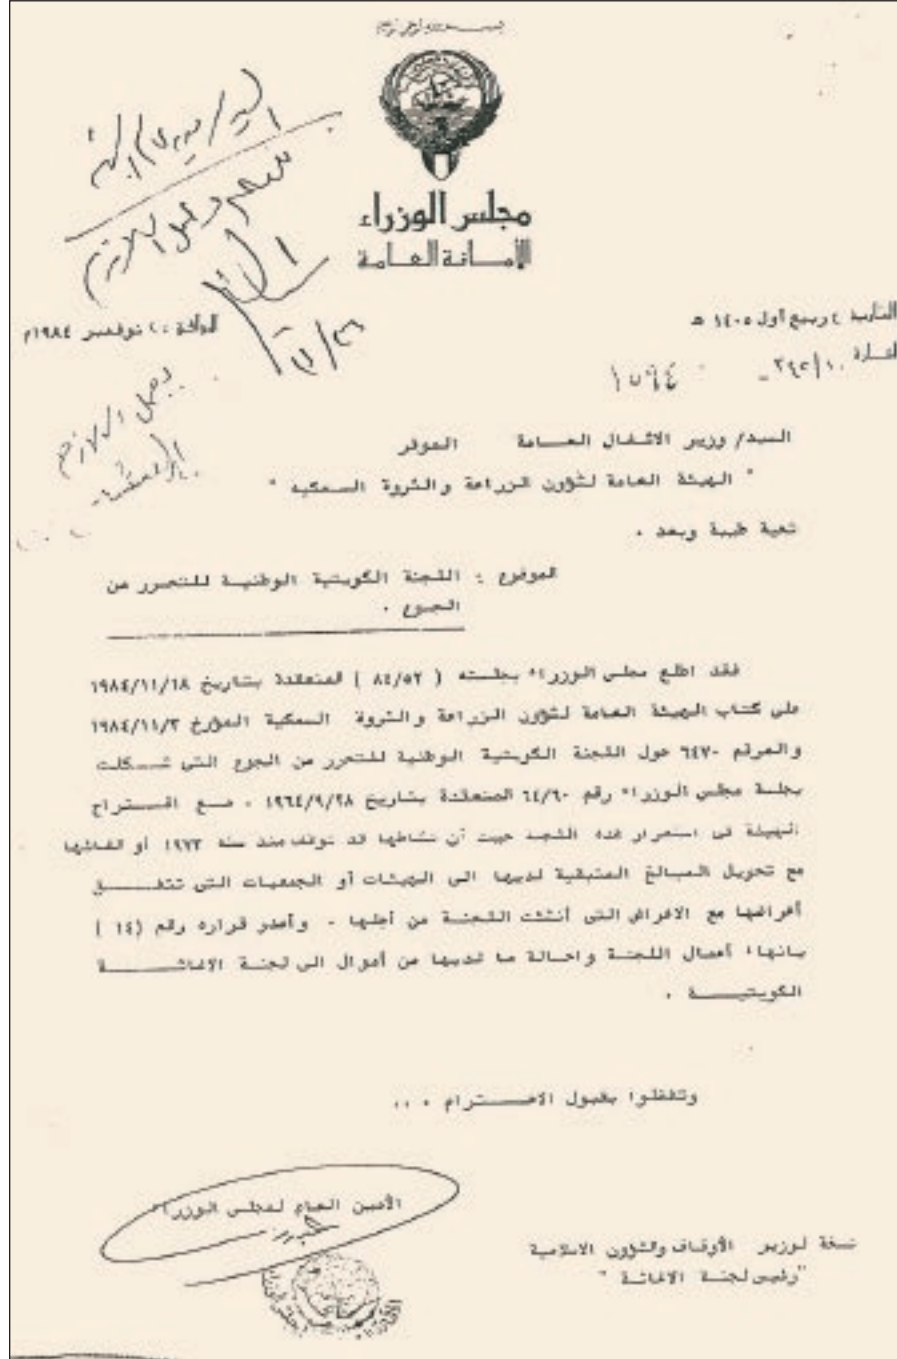 مجلس الوزراء
الأمانة العامة
التاريخ ٤ ربيع أول ١٤٠٥ هـ
نوفمبر ١٩٨٤م
١٥٩٤
السيد/ وزير الاشغال العامة الموقر
" الهيئة العامة لشؤون الزراعة والثروة السمكية "
تحية طيبة وبعد ،
الموضوع : اللجنة الكويتية الوطنية للتحرر من
الجوع .
فقد اطلع مجلس الوزراء بجلسته ( ٨٤/٥٢ ) المنعقدة بتاريخ ١٩٨٤/١١/١٨
على كتاب الهيئة العامة لشؤون الزراعة والثروة السمكية المؤرخ ١٩٨٤/١١/٣
والمرقم ٦٤٧٠ حول اللجنة الكويتية الوطنية للتحرر من الجوع التى شكلت
بجلسة مجلس الوزراء رقم ٦٤/٦٠ المنعقدة بتاريخ ١٩٦٤/٩/٢٨ ، مع اقتراح
الهيئة فى استمرار هذه اللجنة حيث أن نشاطها قد توقف منذ سنة ١٩٧٣ أو الغائها
مع تحويل المبالغ المتبقية لديها الى الهيئات أو الجمعيات التى تتفق
أغراضها مع الاغراض التى أنشئت اللجنة من أجلها . وأصدر قراره رقم (١٤)
بانهاء أعمال اللجنة واحالة ما لديها من أموال الى لجنة الاغاثة
الكويتية .
وتفضلوا بقبول الاحترام ،،،
الأمين العام لمجلس الوزراء
نسخة لوزير الأوقاف والشؤون الاسلامية
"رئيس لجنة الاغاثة "